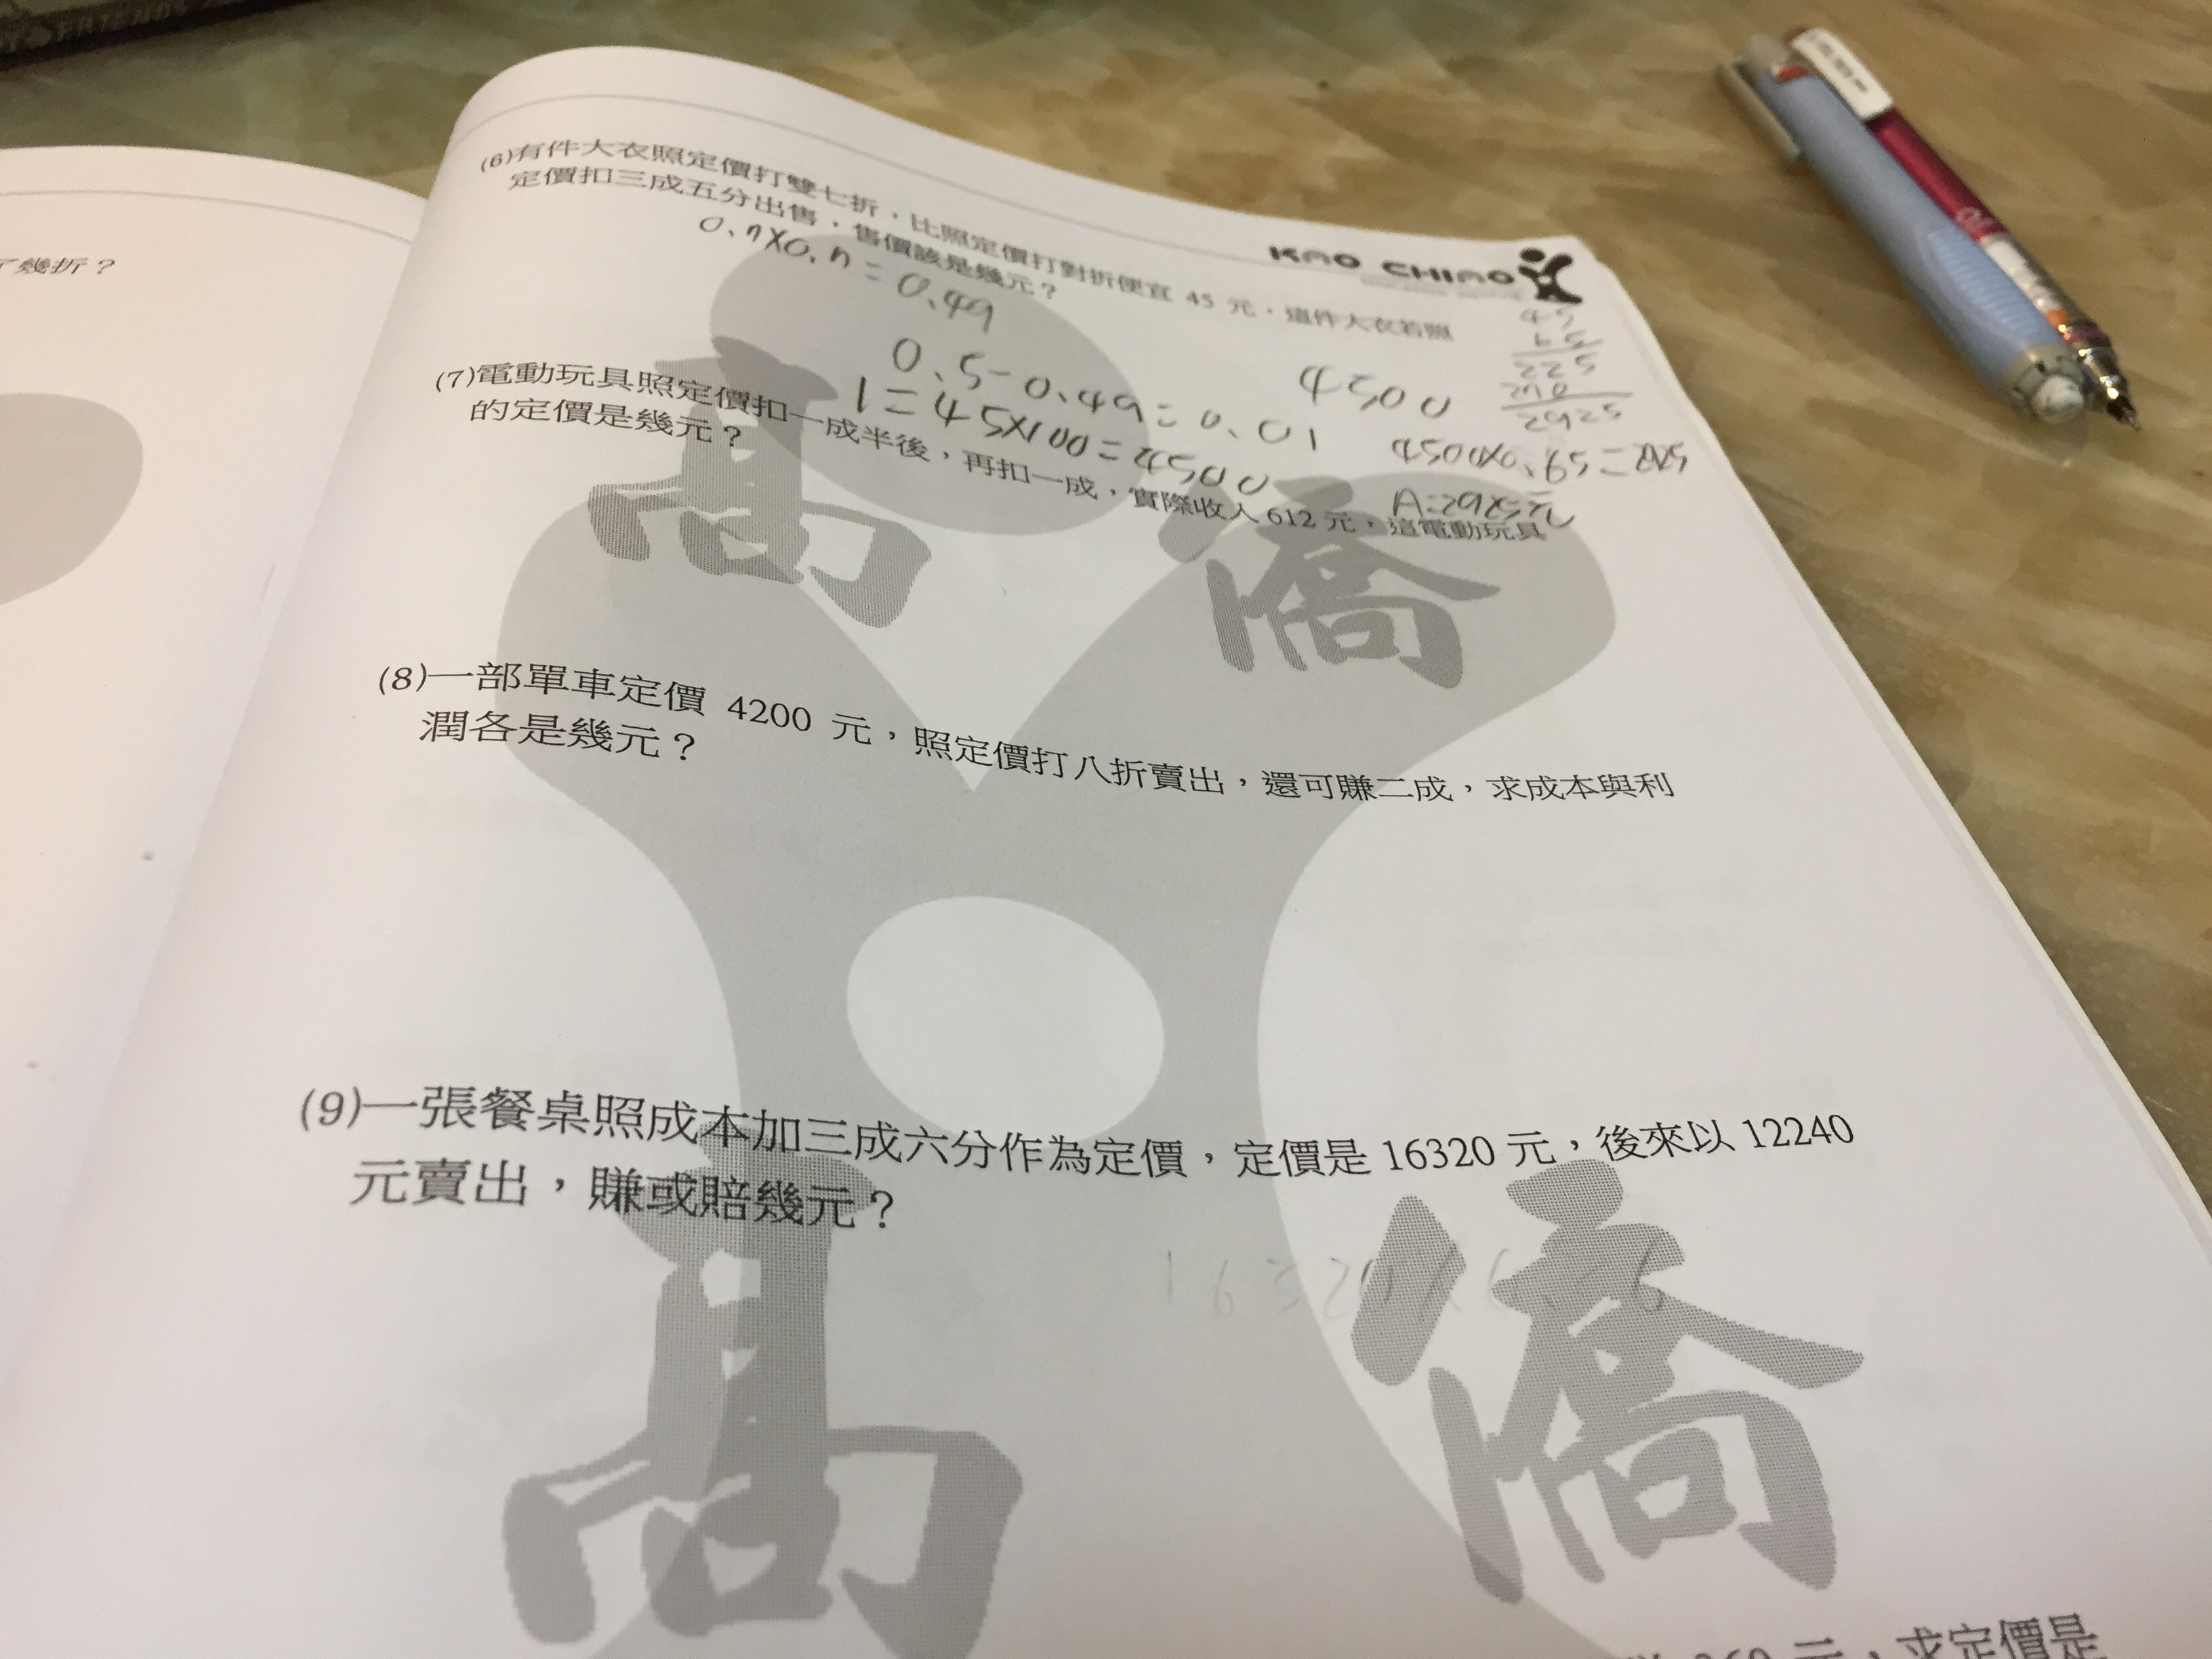 FRIENDS
幾折？
KAO CHIAO
(6)有件大衣照定價打雙七折，比照定價打對折便宜 45 元，這件大衣若照
定價扣三成五分出售，售價該是幾元？
0.7X0.7=0.49
0.5-0.49=0.01
1=45X100=4500
4500
225
2925
4500X0.65=2925
A:2925元
(7)電動玩具照定價扣一成半後，再扣一成，實際收入612元，這電動玩具
的定價是幾元？
高僑
(8)一部單車定價 4200 元，照定價打八折賣出，還可賺二成，求成本與利
潤各是幾元？
(9)一張餐桌照成本加三成六分作為定價，定價是 16320 元，後來以 12240
元賣出，賺或賠幾元？
16320X
高僑
元，求定價是